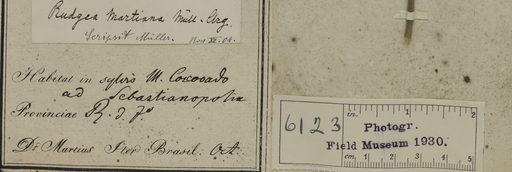 Rudgea Martiana Müll. Arg.
Scripsit Müller. Nov
Habitat in sylvis M. Corcovado
ad Sebastianopolin
Provinciae R. d. J.
Dr Martius Iter Brasil. Oct.
6123
in. 1 2
Photogr.
Field Museum 1930.
cm. 1 2 3 4 5